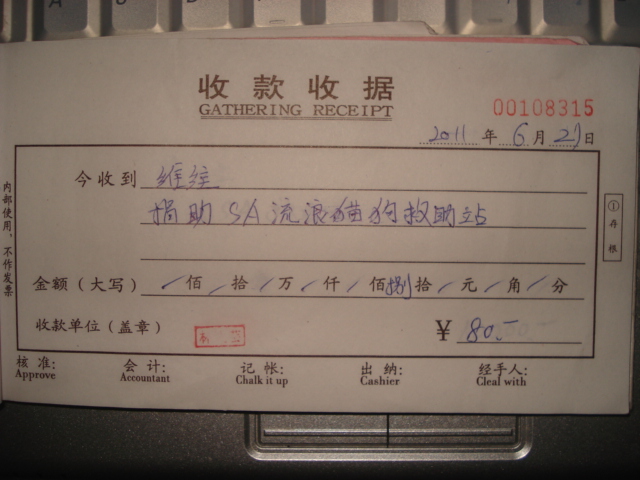 收款收据
GATHERING RECEIPT
00108315
2011年6月27日
今收到 维维
捐助SA流浪猫狗救助站
金额（大写） / 佰 / 拾 / 万 / 仟 / 佰 捌 拾 / 元 / 角 / 分
收款单位（盖章） ¥ 80.-
核准: 会计: 记帐: 出纳: 经手人:
Approve Accountant Chalk it up Cashier Cleal with
内部使用，不作发票
①存根